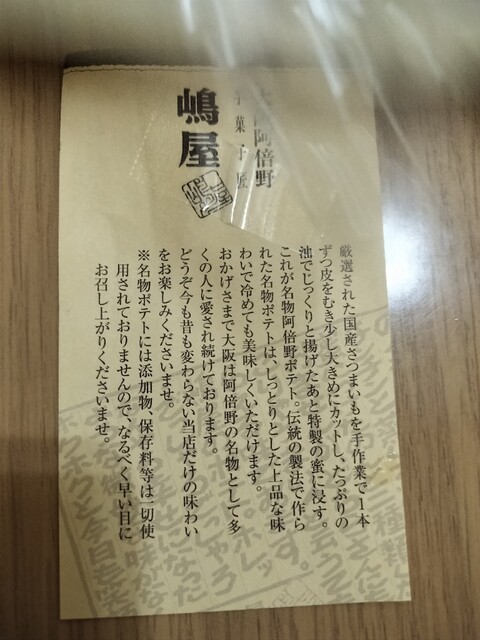 大阪阿倍野
手菓子匠
嶋屋
厳選された国産さつまいもを手作業で1本
ずつ皮をむき少し大きめにカットし、たっぷりの
油でじっくりと揚げたあと特製の蜜に浸す。
これが名物阿倍野ポテト。伝統の製法で作ら
れた名物ポテトは、しっとりとした上品な味
わいで冷めても美味しくいただけます。
おかげさまで大阪は阿倍野の名物として多
くの人に愛され続けております。
どうぞ今も昔も変わらない当店だけの味わい
をお楽しみくださいませ。
※名物ポテトには添加物、保存料等は一切使
用されておりませんので、なるべく早い目に
お召し上がりくださいませ。